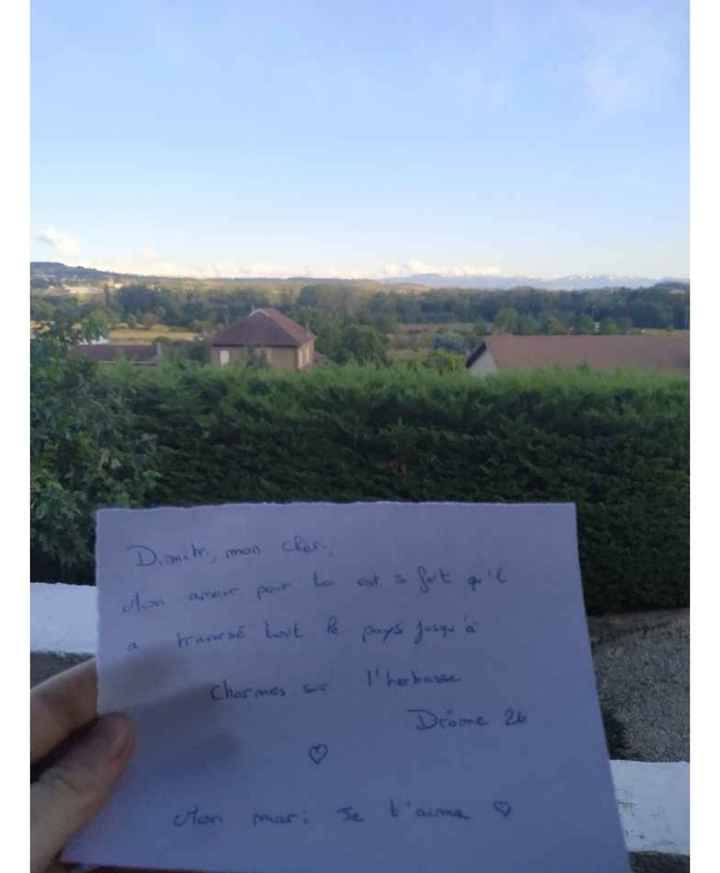 Dimitri, mon chéri,
Mon amour pour toi est si fort qu'il
a traversé tout le pays jusqu'à
Charmes sur l'herbasse
Drôme 26
♡
Mon mari je t'aime ♡